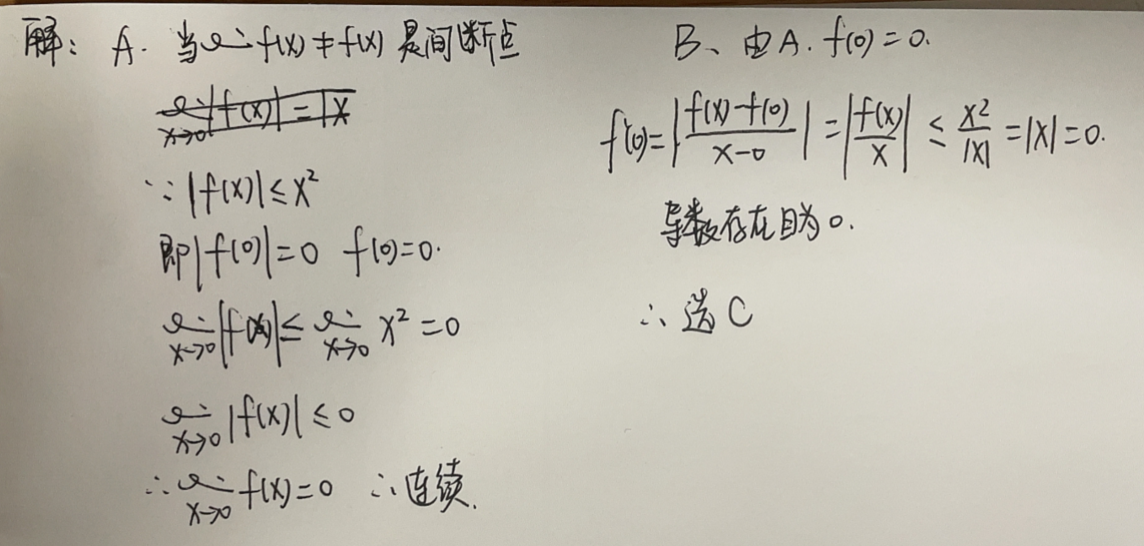 解: A. 当lim f(x)≠f(x) 是间断点
lim x→0 |f(x)|=|x
∵ |f(x)|≤x²
即|f(0)|=0 f(0)=0.
lim x→0 |f(x)|≤lim x→0 x²=0
lim x→0 |f(x)|≤0
∴ lim x→0 f(x)=0 ∴连续.
B、由A. f(0)=0.
f'(0)=|f(x)-f(0)/x-0|=|f(x)/x|≤x²/|x|=|x|=0.
导数存在且为0.
∴ 选C